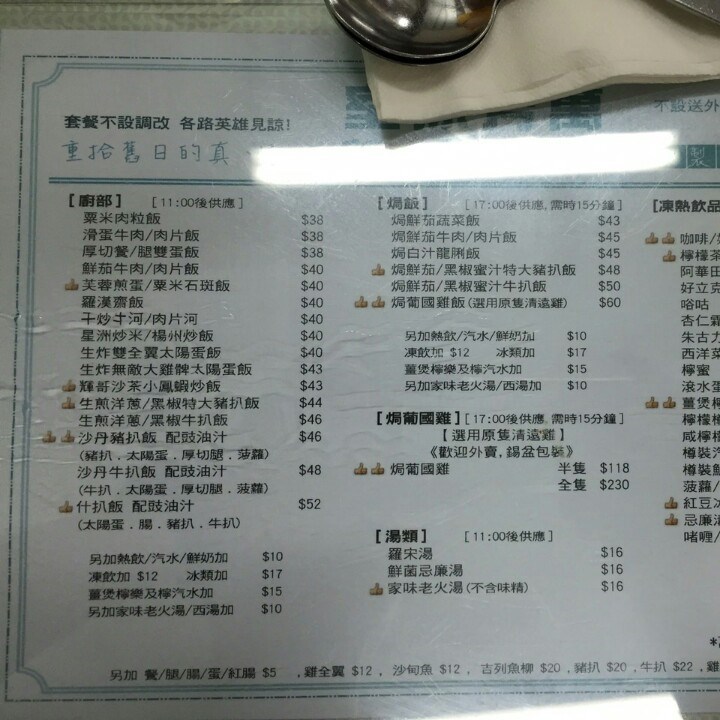 套餐不設調改 各路英雄見諒!
不設送外
重拾舊日的真
製
[廚部] [11:00後供應]
粟米肉粒飯 $38
滑蛋牛肉/肉片飯 $38
厚切餐/腿雙蛋飯 $38
鮮茄牛肉/肉片飯 $40
芙蓉煎蛋/粟米石斑飯 $40
羅漢齋飯 $40
干炒牛河/肉片河 $40
星洲炒米/楊州炒飯 $40
生炸雙全翼太陽蛋飯 $40
生炸無敵大雞髀太陽蛋飯 $43
輝哥沙茶小鳳蝦炒飯 $43
生煎洋蔥/黑椒特大豬扒飯 $44
生煎洋蔥/黑椒牛扒飯 $46
沙丹豬扒飯 配豉油汁 $46
(豬扒.太陽蛋.厚切腿.菠蘿)
沙丹牛扒飯 配豉油汁 $48
(牛扒.太陽蛋.厚切腿.菠蘿)
什扒飯 配豉油汁 $52
(太陽蛋.腸.豬扒.牛扒)
另加熱飲/汽水/鮮奶加 $10
凍飲加 $12 冰類加 $17
薑煲檸樂及檸汽水加 $15
另加家味老火湯/西湯加 $10
[焗飯] [17:00後供應,需時15分鐘]
焗鮮茄蔬菜飯 $43
焗鮮茄牛肉/肉片飯 $45
焗白汁龍脷飯 $45
焗鮮茄/黑椒蜜汁特大豬扒飯 $48
焗鮮茄/黑椒蜜汁牛扒飯 $50
焗葡國雞飯(選用原隻清遠雞) $60
另加熱飲/汽水/鮮奶加 $10
凍飲加 $12 冰類加 $17
薑煲檸樂及檸汽水加 $15
另加家味老火湯/西湯加 $10
[焗葡國雞] [17:00後供應,需時15分鐘]
【選用原隻清遠雞】
《歡迎外賣,錫盆包裝》
焗葡國雞 半隻 $118
全隻 $230
[湯類] [11:00後供應]
羅宋湯 $16
鮮菌忌廉湯 $16
家味老火湯(不含味精) $16
[凍熱飲品
咖啡/
檸檬茶
阿華田
好立克
唂咕
杏仁霜
朱古力
西洋菜
檸蜜
滾水蛋
薑煲檸
檸檬
咸檸
樽裝汽
樽裝
菠蘿/
紅豆冰
忌廉
啫喱/
另加 餐/腿/腸/蛋/紅腸 $5 ,雞全翼 $12 , 沙甸魚 $12 , 吉列魚柳 $20 ,豬扒 $20 ,牛扒 $22 ,雞